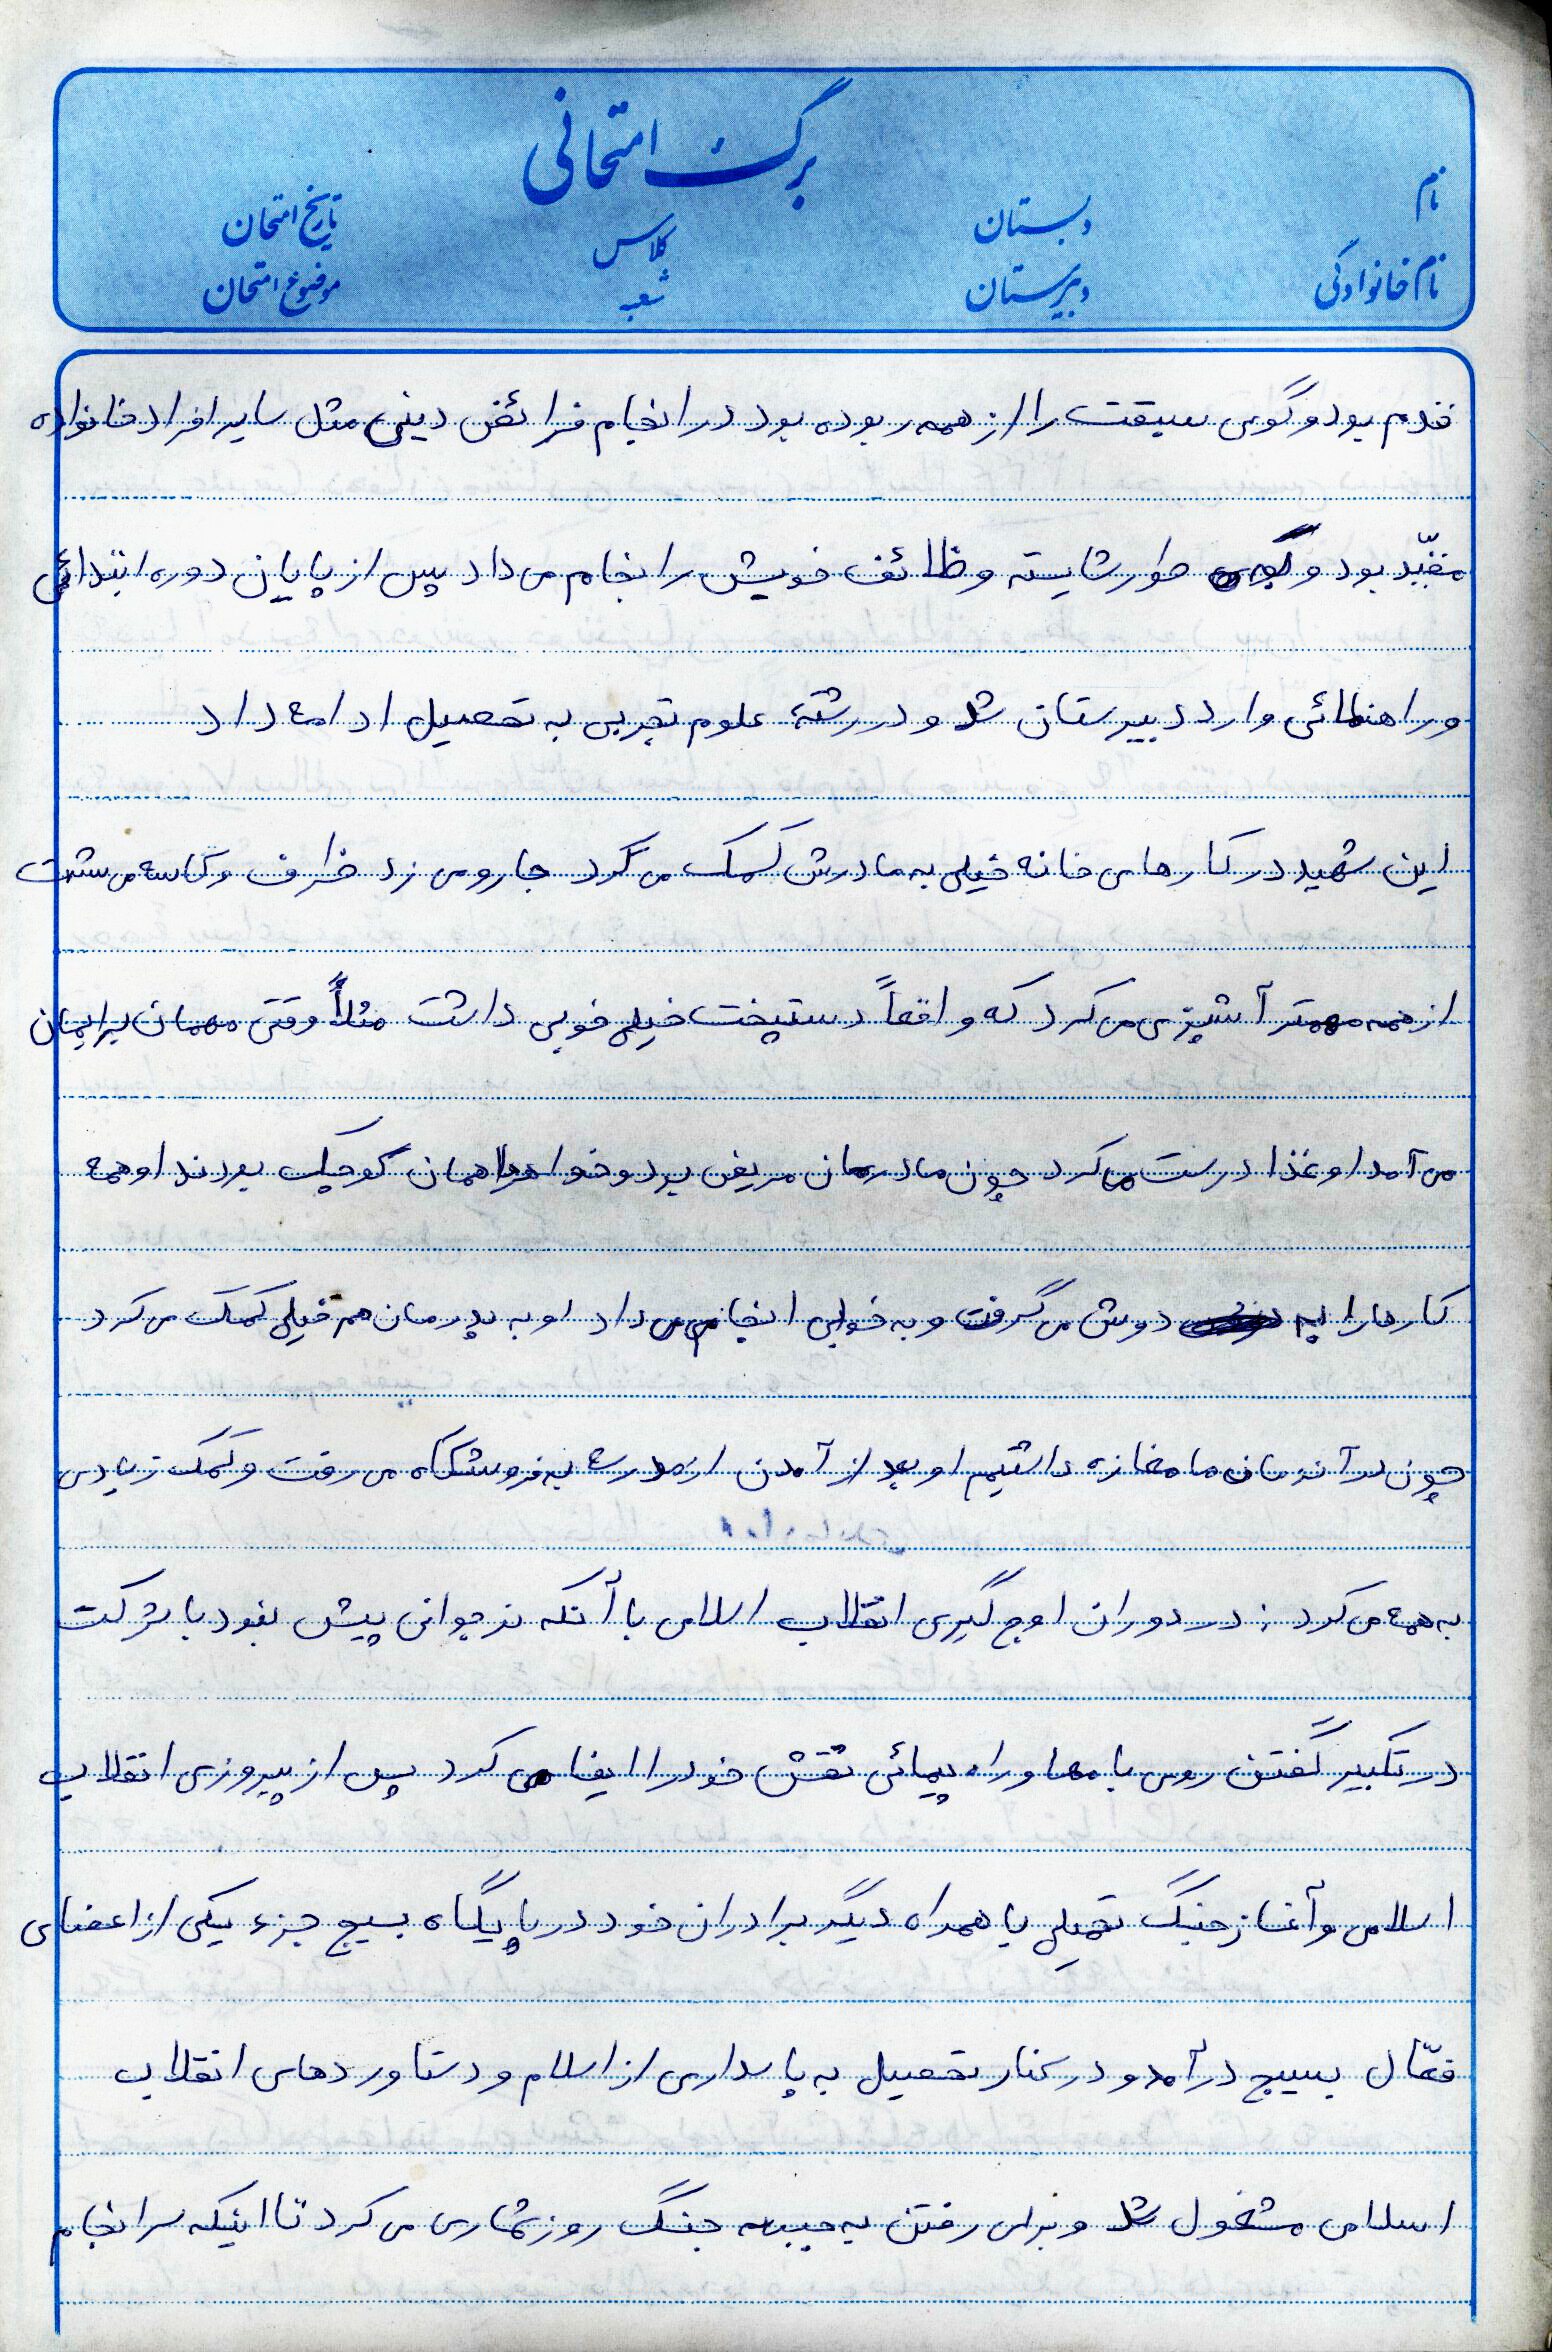 برگ امتحانی
نام
نام خانوادگی
دبستان
دبیرستان
کلاس
شعبه
تاریخ امتحان
موضوع امتحان
قدم بود و گوی سبقت را از همه ربوده بود در انجام فرائض دینی مثل سایر افراد خانواده
مقیّد بود و طور شایسته وظائف خویش را انجام می داد پس از پایان دوره ابتدائی
و راهنمائی وارد دبیرستان شد و در رشتهٔ علوم تجربی به تحصیل ادامه داد
این شهید در کارهای خانه خیلی به مادرش کمک می کرد جارو می زد ظرف و کاسه می شست
از همه مهمتر آشپزی می کرد که واقعاً دستپخت خیلی خوبی داشت مثلاً وقتی مهمان برایمان
می آمد او غذا درست می کرد چون مادرمان مریض بود و خواهرهامان کوچک بودند او همه
کارها را به دوش می گرفت و به خوبی انجام می داد او به پدرمان هم خیلی کمک می کرد
چون در آن زمان ما مغازه داشتیم او بعد از آمدن از مدرسه به فروشگاه می رفت و کمک زیادی
به همه می کرد . در دوران اوج گیری انقلاب اسلامی با آنکه نوجوانی بیش نبود با شرکت
در تکبیر گفتن روی بامها و راه پیمائی نقش خود را ایفا می کرد پس از پیروزی انقلاب
اسلامی و آغاز جنگ تحمیلی با همراه دیگر برادران خود در پایگاه بسیج جزء یکی از اعضای
فعّال بسیج درآمد و در کنار تحصیل به پاسداری از اسلام و دستاوردهای انقلاب
اسلامی مشغول شد و برای رفتن به جبهه جنگ روزشماری می کرد تا اینکه سرانجام